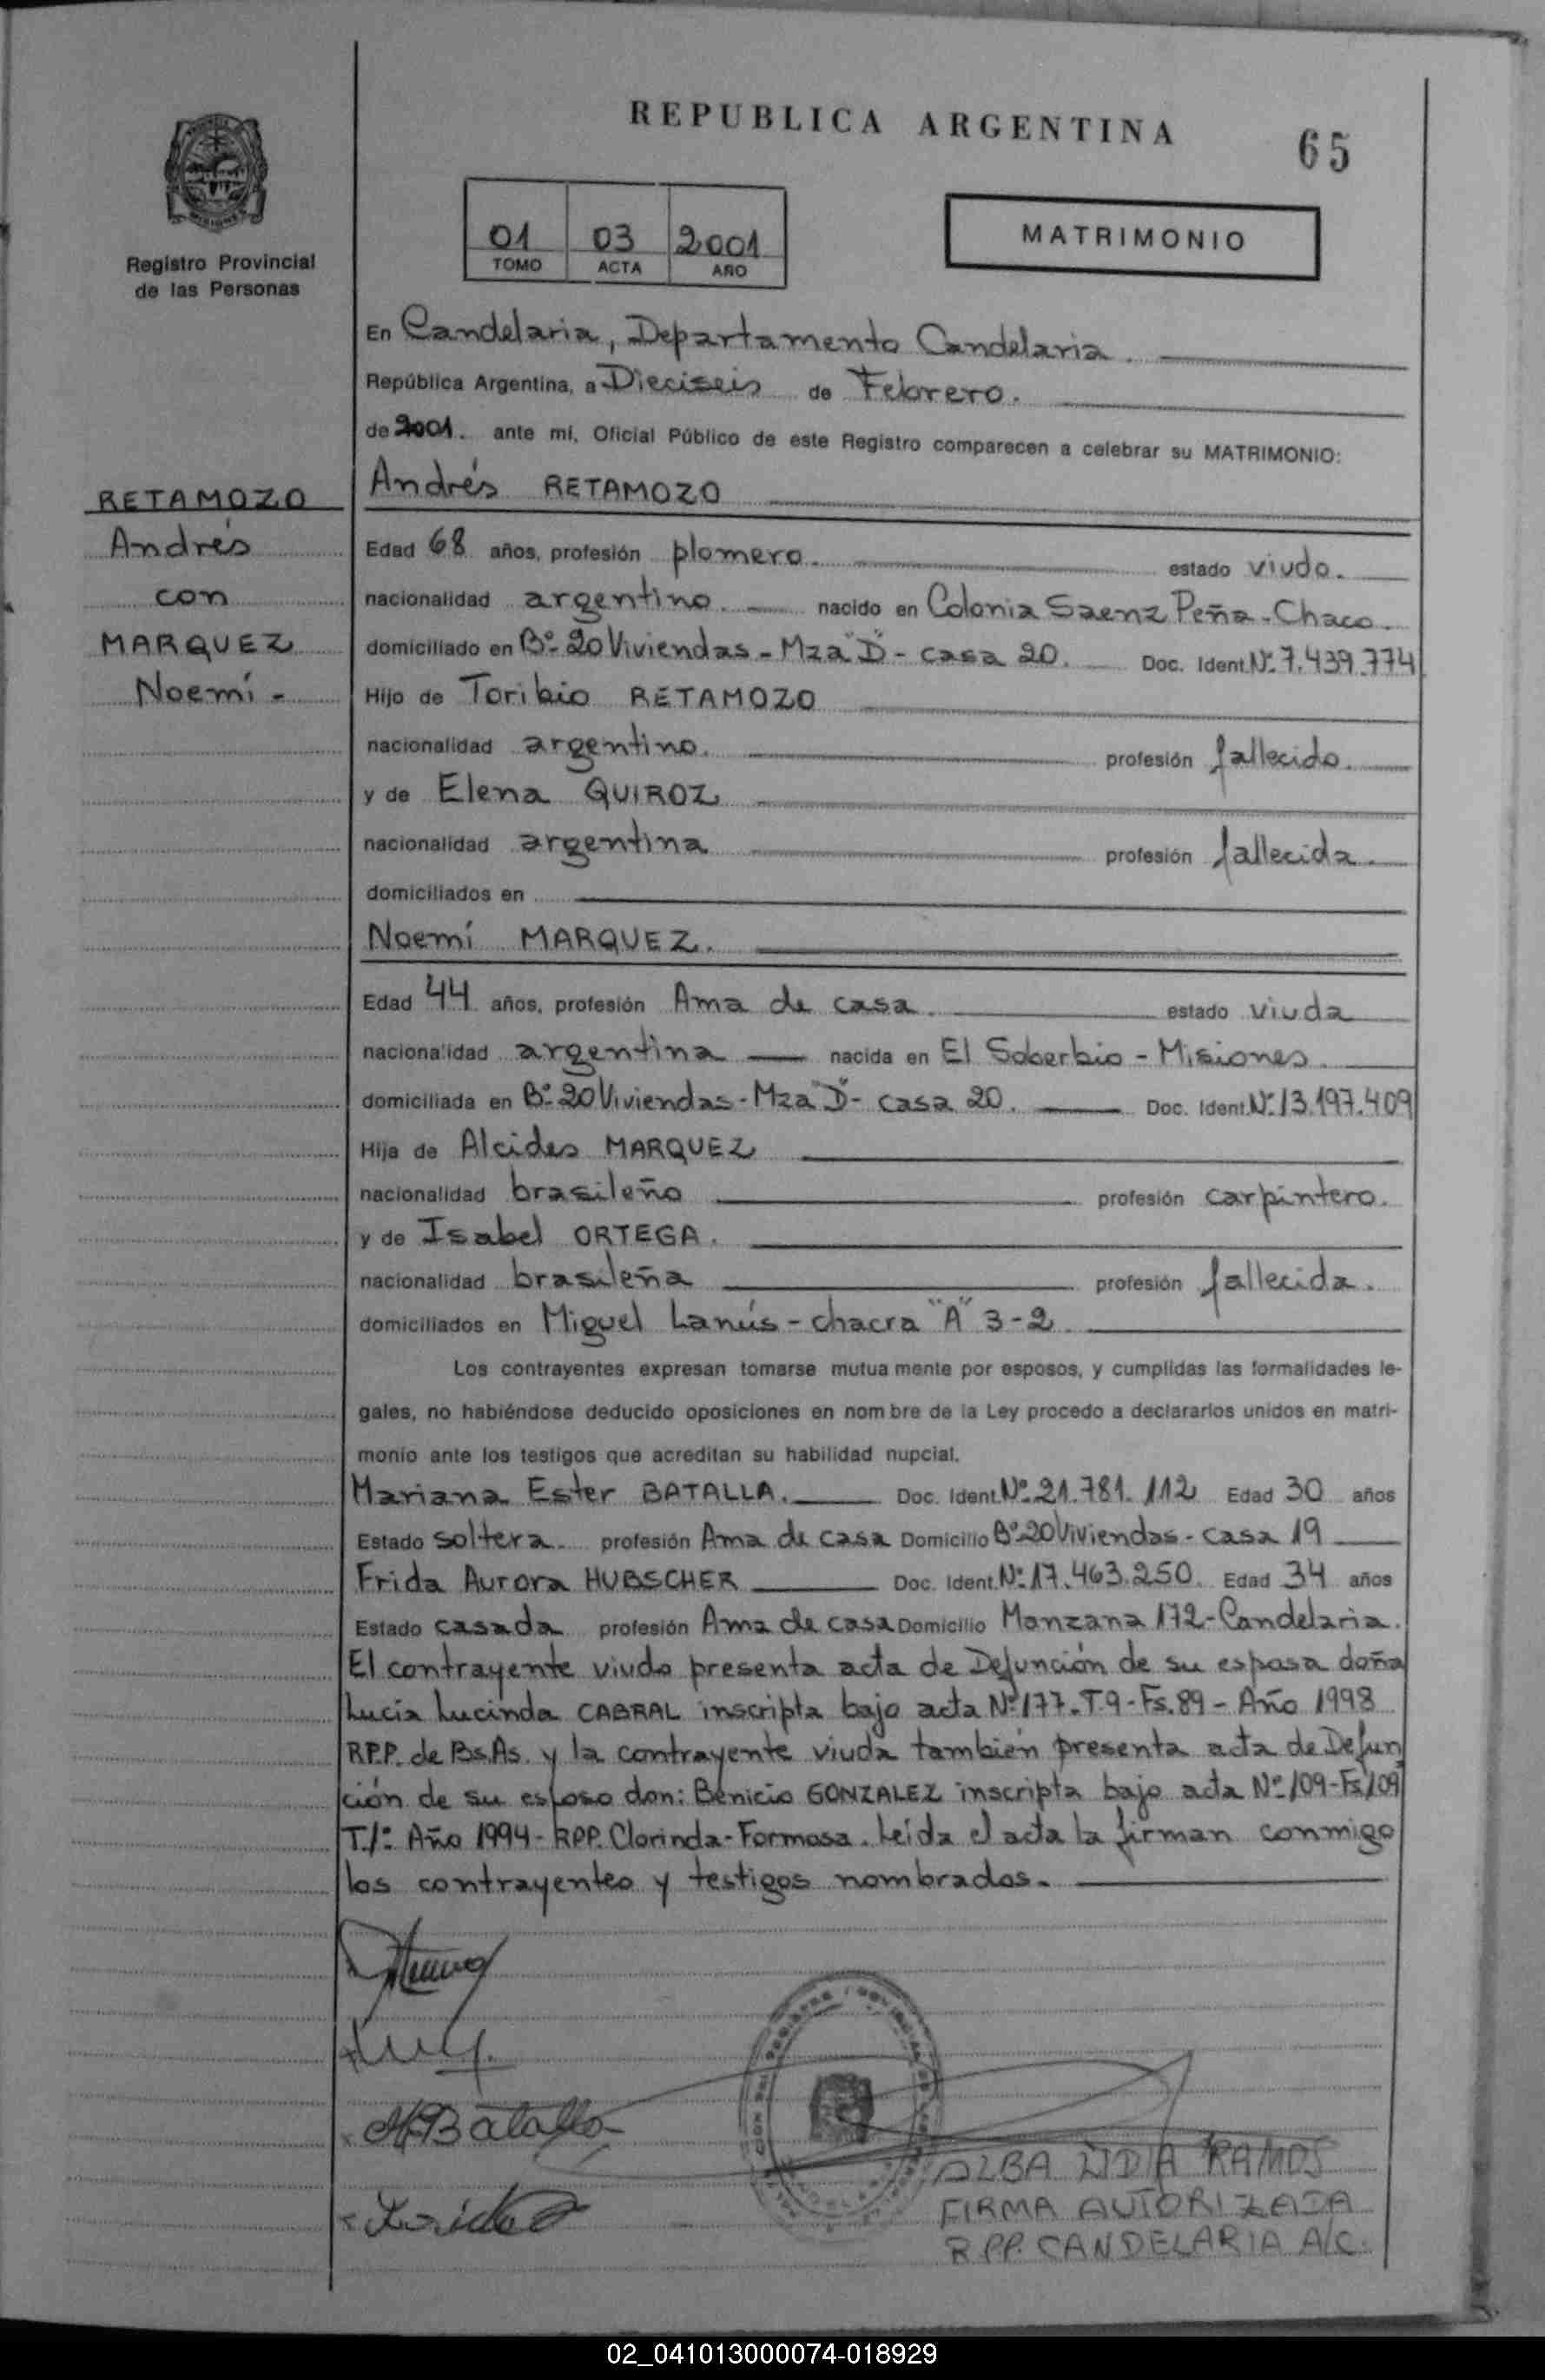 REPUBLICA ARGENTINA
65
01 03 2001
TOMO ACTA AÑO
MATRIMONIO
Registro Provincial
de las Personas
En Candelaria, Departamento Candelaria.
República Argentina, a Dieciseis de Febrero.
de 2001. ante mí, Oficial Público de este Registro comparecen a celebrar su MATRIMONIO:
RETAMOZO
Andrés
con
MARQUEZ
Noemí -
Andrés RETAMOZO
Edad 68 años, profesión plomero. estado viudo.
nacionalidad argentino. nacido en Colonia Saenz Peña - Chaco.
domiciliado en Bº- 20 Viviendas - Mza "D" - casa 20. Doc. Ident. Nº 7.439.774
Hijo de Toribio RETAMOZO
nacionalidad argentino. profesión fallecido.
y de Elena QUIROZ
nacionalidad argentina profesión fallecida.
domiciliados en
Noemí MARQUEZ.
Edad 44 años, profesión Ama de casa. estado viuda
nacionalidad argentina nacida en El Soberbio - Misiones
domiciliada en Bº- 20 Viviendas - Mza "D" - casa 20. Doc. Ident. Nº 13.197.409
Hija de Alcides MARQUEZ
nacionalidad brasileño profesión carpintero.
y de Isabel ORTEGA.
nacionalidad brasileña profesión fallecida.
domiciliados en Miguel Lanús - chacra "A" 3-2
Los contrayentes expresan tomarse mutua mente por esposos, y cumplidas las formalidades le-
gales, no habiéndose deducido oposiciones en nom bre de la Ley procedo a declararlos unidos en matri-
monio ante los testigos que acreditan su habilidad nupcial.
Mariana Ester BATALLA. Doc. Ident. Nº 21.781.112 Edad 30 años
Estado soltera. profesión Ama de casa Domicilio Bº 20 Viviendas - casa 19
Frida Aurora HUBSCHER Doc. Ident. Nº 17.463.250. Edad 34 años
Estado casada profesión Ama de casa Domicilio Manzana 172 - Candelaria.
El contrayente viudo presenta acta de Defunción de su esposa doña
Lucía Lucinda CABRAL inscripta bajo acta Nº 177. T.9 - Fs. 89 - Año 1998
RPP. de Bs.As. y la contrayente viuda también presenta acta de Defun
ción de su esposo don: Benicio GONZALEZ inscripta bajo acta Nº 109 - Fs 109
T.1º Año 1994 - RPP. Clorinda - Formosa. Leída el acta la firman conmigo
los contrayentes y testigos nombrados.
MBatalla
Frida
ALBA LIDIA RAMOS
FIRMA AUTORIZADA
R.PP. CANDELARIA A/C.
02_041013000074-018929